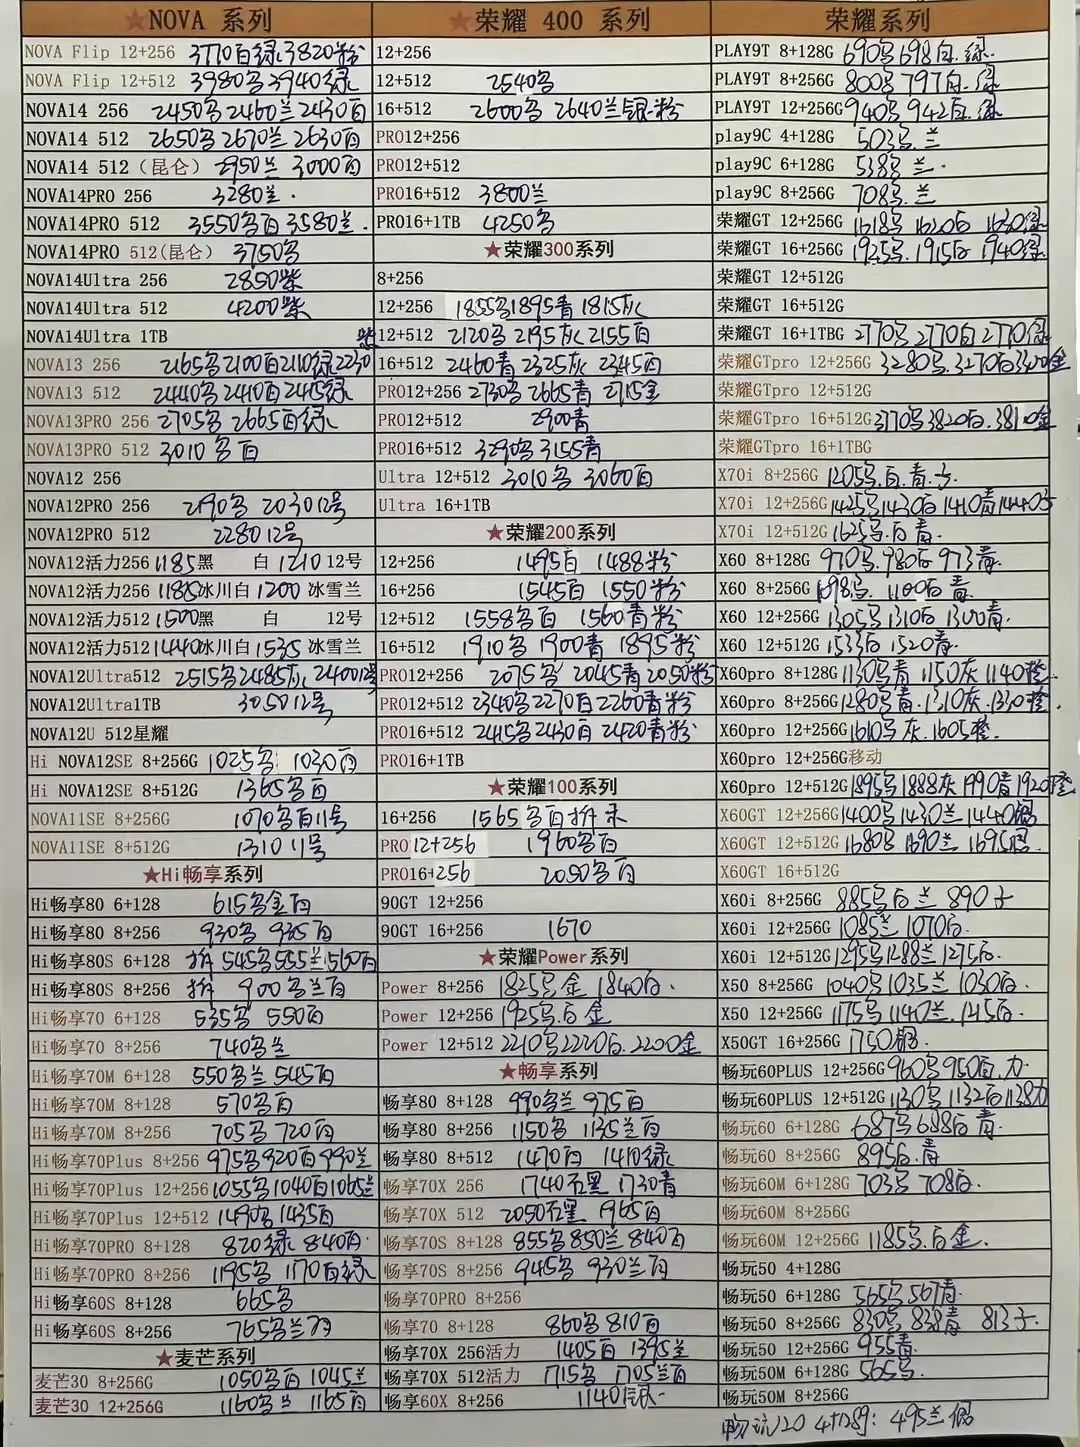 ★NOVA 系列
NOVA Flip 12+256 3770百绿3820粉
NOVA Flip 12+512 3980名3940绿
NOVA14 256 2450名2460兰2430百
NOVA14 512 2650名2670兰2630百
NOVA14 512（昆仑） 2950兰 3000百
NOVA14PRO 256 3280兰.
NOVA14PRO 512 3550名百3580兰.
NOVA14PRO 512(昆仑) 3750名
NOVA14Ultra 256 2850紫
NOVA14Ultra 512 4200紫
NOVA14Ultra 1TB 紫
NOVA13 256 2165名2100百2110绿2230
NOVA13 512 2440名2410百2415绿
NOVA13PRO 256 2705名 2665百绿
NOVA13PRO 512 3010名百
NOVA12 256
NOVA12PRO 256 2190名 2030 12号
NOVA12PRO 512 2280 12号
NOVA12活力256 1185黑 白 1210 12号
NOVA12活力256 1185冰川白 1200 冰雪兰
NOVA12活力512 1500黑 白 12号
NOVA12活力512 1440冰川白 1535 冰雪兰
NOVA12Ultra512 2515名2485灰 2400 12号
NOVA12Ultra1TB 3050 12号
NOVA12U 512星耀
Hi NOVA12SE 8+256G 1025名 1030百
Hi NOVA12SE 8+512G 1365名百
NOVA11SE 8+256G 1070名百11号
NOVA11SE 8+512G 1310 11号
★Hi畅享系列
Hi畅享80 6+128 615名金百
Hi畅享80 8+256 930名 935百
Hi畅享80S 6+128 拆 545名555兰560百
Hi畅享80S 8+256 拆 900名兰百
Hi畅享70 6+128 535名 550百
Hi畅享70 8+256 740名兰
Hi畅享70M 6+128 550名兰 545百
Hi畅享70M 8+128 570名百
Hi畅享70M 8+256 705名 720百
Hi畅享70Plus 8+256 975名920百990兰
Hi畅享70Plus 12+256 1055名1040百1065兰
Hi畅享70Plus 12+512 1490名1435百
Hi畅享70PRO 8+128 820绿 840百.
Hi畅享70PRO 8+256 1195名 1170百绿
Hi畅享60S 8+128 665名
Hi畅享60S 8+256 765名兰
★麦芒系列
麦芒30 8+256G 1050名百 1045兰
麦芒30 12+256G 1160名兰 1165百
★荣耀 400 系列
12+256
12+512 2540名
16+512 2600名 2640兰银.粉
PRO12+256
PRO12+512
PRO16+512 3800兰
PRO16+1TB 4250名
★荣耀300系列
8+256
12+256 1855名1895青 1815灰
12+512 2120名 2195灰 2155百
16+512 2460青 2325灰 2345百
PRO12+256 2730名 2665青 2715金
PRO12+512 2900青
PRO16+512 3290名 3155青
Ultra 12+512 3010名 3060百
Ultra 16+1TB
★荣耀200系列
12+256 1495百 1488粉
16+256 1545百 1550粉
12+512 1558名百 1560青粉
16+512 1910名 1900青 1895粉
PRO12+256 2075名 2045青2050粉
PRO12+512 2340名2270百2260青粉
PRO16+512 2415名2430百 2420青粉
PRO16+1TB
★荣耀100系列
16+256 1565名百拆未
PRO 12+256 1960名百
PRO16+256 2050名百
90GT 12+256
90GT 16+256 1670
★荣耀Power系列
Power 8+256 1825名金 1840百.
Power 12+256 1925名.百金
Power 12+512 2210名2220百.2200金
★畅享系列
畅享80 8+128 990名兰 975百
畅享80 8+256 1150名 1135兰百
畅享80 8+512 1470百 1410绿
畅享70X 256 1740石黑 1730青
畅享70X 512 2050石黑 1965百
畅享70S 8+128 855名 850兰 840百
畅享70S 8+256 945名 930兰百
畅享70PRO 8+256
畅享70 8+128 860名 810百
畅享70X 256活力 1405百 1395兰
畅享70X 512活力 1715名 1705兰百
畅享60X 8+256 1140银.
荣耀系列
PLAY9T 8+128G 690名698百.绿
PLAY9T 8+256G 800名 797百.绿
PLAY9T 12+256G 940名 942百.绿
play9C 4+128G 503名.兰
play9C 6+128G 538名 兰.
play9C 8+256G 708名.兰
荣耀GT 12+256G 1618名 1620百 1630绿
荣耀GT 16+256G 1925名.1915百 1940绿
荣耀GT 12+512G
荣耀GT 16+512G
荣耀GT 16+1TBG 2770名 2770百 2770绿
荣耀GTpro 12+256G 3280名.3270百 金
荣耀GTpro 12+512G
荣耀GTpro 16+512G 3770名3820百.3810金
荣耀GTpro 16+1TBG
X70i 8+256G 1205名.百.青.子.
X70i 12+256G 1425名1430百1410青1440子
X70i 12+512G 1625名.百青.
X60 8+128G 970名.980百 973青.
X60 8+256G 1098名. 1100百 青.
X60 12+256G 1305名1310百 1300青.
X60 12+512G 1533百 1520青.
X60pro 8+128G 1130名青 1150灰 1140橙.
X60pro 8+256G 1280名青.1310灰.1330橙.
X60pro 12+256G 1610名灰.1605橙.
X60pro 12+256G移动
X60pro 12+512G 1895名1888灰1990青1920橙
X60GT 12+256G 1400名1430兰1440银
X60GT 12+512G 1680名1690兰1695银.
X60GT 16+512G
X60i 8+256G 885名百兰 890子
X60i 12+256G 1085兰 1070百.
X60i 12+512G 1295名1288兰1275百.
X50 8+256G 1040名1035兰 1030百.
X50 12+256G 1175名1140兰.1215百.
X50GT 16+256G 1750银.
畅玩60PLUS 12+256G 960名950百.力
畅玩60PLUS 12+512G 1130名1132百1138力
畅玩60 6+128G 687名688百青.
畅玩60 8+256G 895百.青
畅玩60M 6+128G 703名 708百.
畅玩60M 8+256G
畅玩60M 12+256G 1185名.百金.
畅玩50 4+128G
畅玩50 6+128G 565名567青.
畅玩50 8+256G 830名 838青 813子.
畅玩50 12+256G 955青.
畅玩50M 6+128G 565名.
畅玩50M 8+256G
畅玩20 4+128g: 495兰银